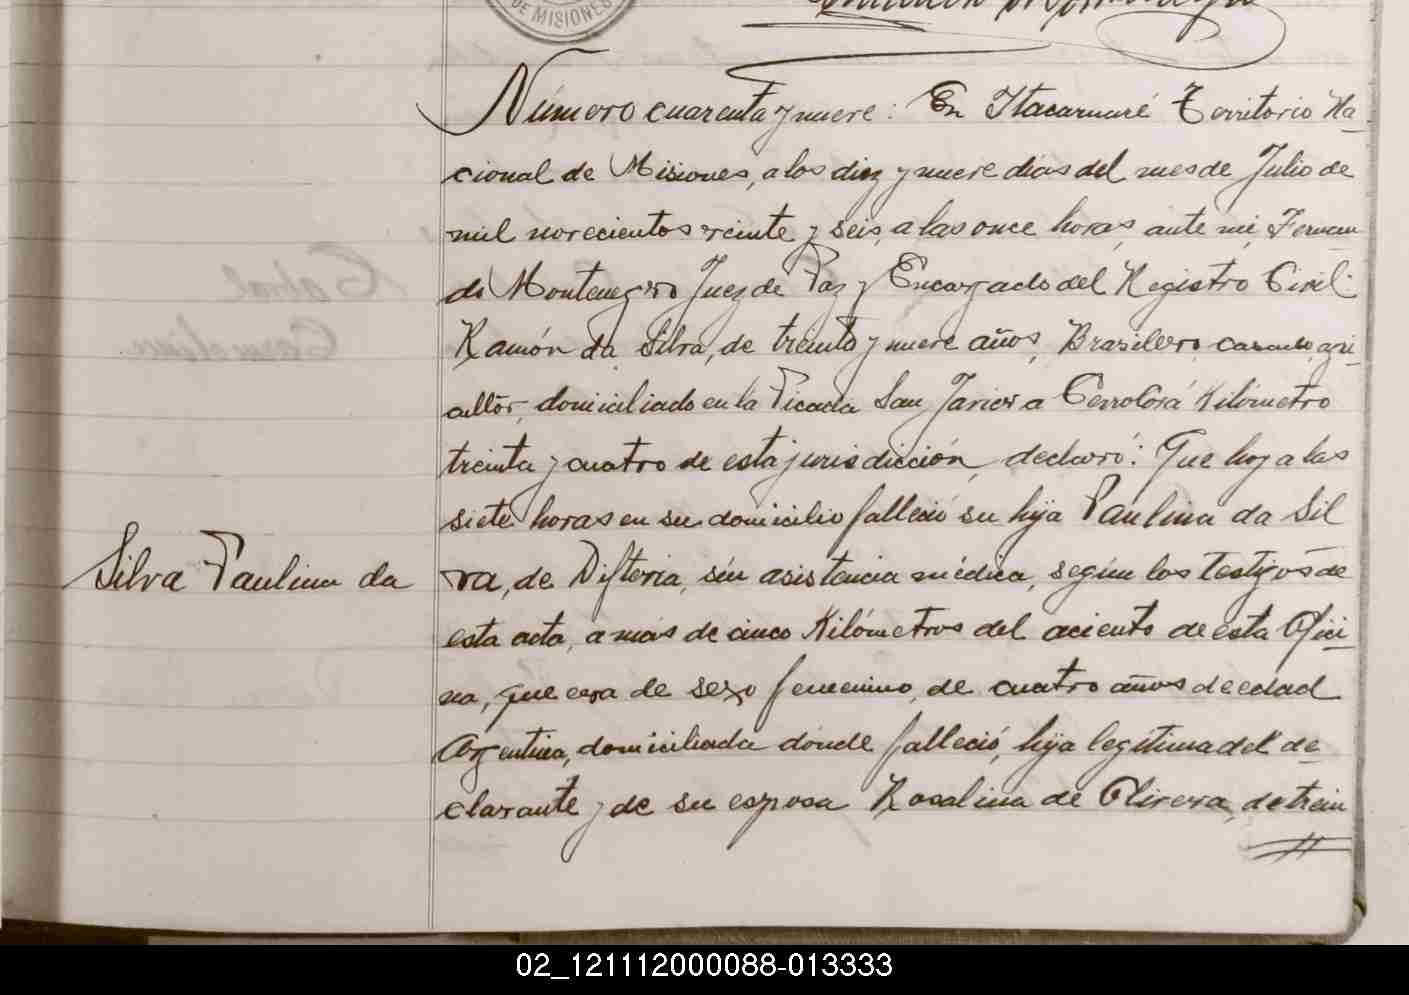 DE MISIONES
Número cuarenta y nueve: En Itacaruaré Territorio Na-
cional de Misiones, a los diez y nueve dias del mes de Julio de
mil novecientos veinte y seis, a las once horas, ante mi, Fernan
do Montenegro Juez de Paz y Encargado del Registro Civil:
Ramón da Silva, de treinta y nueve años, Brasilero, casado, agri-
cultor, domiciliado en la Picada San Javier a Cerro Corá Kilómetro
treinta y cuatro de esta jurisdicción, declaró: Que hoy a las
siete horas en su domicilio falleció su hija Paulina da Sil
Silva Paulina da
va, de Difteria, sin asistencia médica, según los testigos de
esta acta, a más de cinco Kilómetros del aciento de esta Ofici-
na, que era de sexo femenino, de cuatro años de edad
Argentina, domiciliada donde falleció, hija legitima del de-
clarante y de su esposa Rosalina de Olivera, de trein
02_121112000088-013333